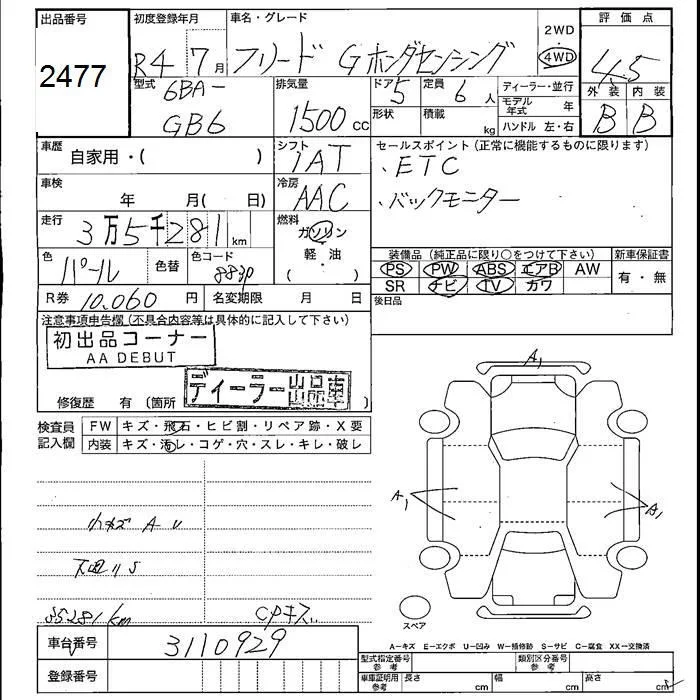 出品番号
2477
初度登録年月
R4 7月
車名・グレード
フリード Gホンダセンシング
2WD
4WD
評価点
4.5
外装 内装
B B
型式
6BA-
GB6
排気量
1500cc
ドア 5
形状
定員 6人
積載 kg
ディーラー・並行
モデル年式 年
ハンドル 左・右
車歴
自家用・( )
シフト
IAT
セールスポイント(正常に機能するものに限ります)
、ETC
、バックモニター
車検
年 月( 日)
冷房
AAC
走行
3万5千281km
燃料
ガソリン
・
軽・油
( )
色
パール
色替
色コード
883P
装備品(純正品に限り○をつけて下さい)
新車保証書
PS PW ABS エアB AW
SR ナビ TV カワ
有・無
R券 10,060円
名変期限 月 日
後日品
注意事項申告欄(不具合内容等は具体的に記入して下さい)
初出品コーナー
AA DEBUT
ディーラー出品車
修復歴 有 (箇所 )
検査員記入欄
FW キズ・飛石・ヒビ割・リペア跡・X要
内装 キズ・汚レ・コゲ・穴・スレ・キレ・破レ
A1
A1
A1
小キズ A U
35281km
CPキズ
スペア
車台番号
3110929
登録番号
A-キズ E-エクボ U-凹み W-補修跡 S-サビ C-腐食 XX-交換済
型式指定番号 参考
類別区分番号 参考
車庫証明用 参考
長さ cm
幅 cm
高さ cm